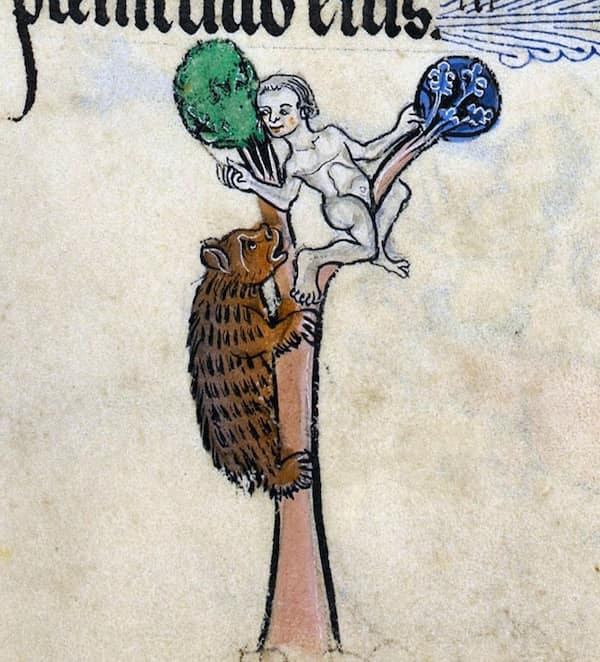 plenitudo eius.